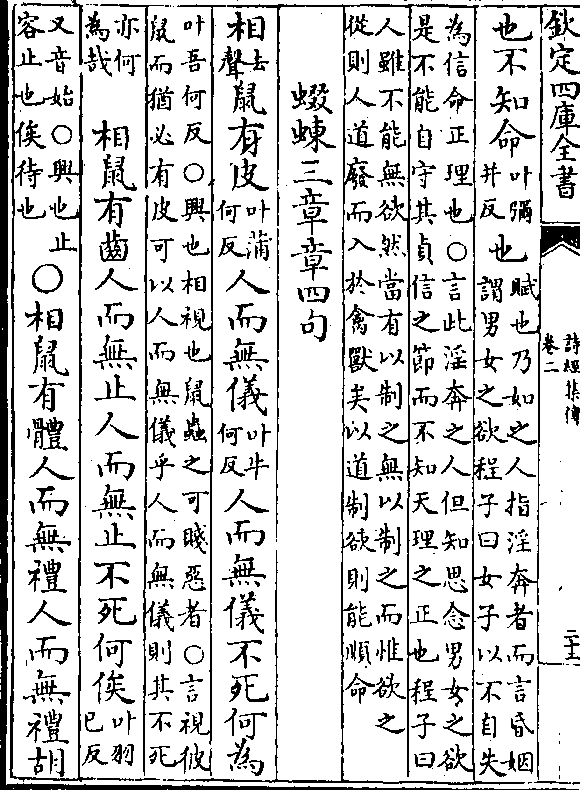 欽定四庫全書
詩經集傳
卷二
二十五
也不知命叶彌
并反也賦也乃如之人指淫奔者而言昏姻
謂男女之欲程子曰女子以不自失
為信命正理也○言此淫奔之人但知思念男女之欲
是不能自守其貞信之節而不知天理之正也程子曰
人雖不能無欲然當有以制之無以制之而惟欲之
從則人道廢而入於禽獸矣以道制欲則能順命
蝃蝀三章章四句
相去
聲鼠有皮叶蒲
何反人而無儀叶牛
何反人而無儀不死何為
叶吾何反○興也相視也鼠蟲之可賤惡者○言視彼
鼠而猶必有皮可以人而無儀乎人而無儀則其不死
亦何
為哉　相鼠有齒人而無止人而無止不死何俟叶羽
已反
又音始○興也止
容止也俟待也○相鼠有體人而無禮人而無禮胡